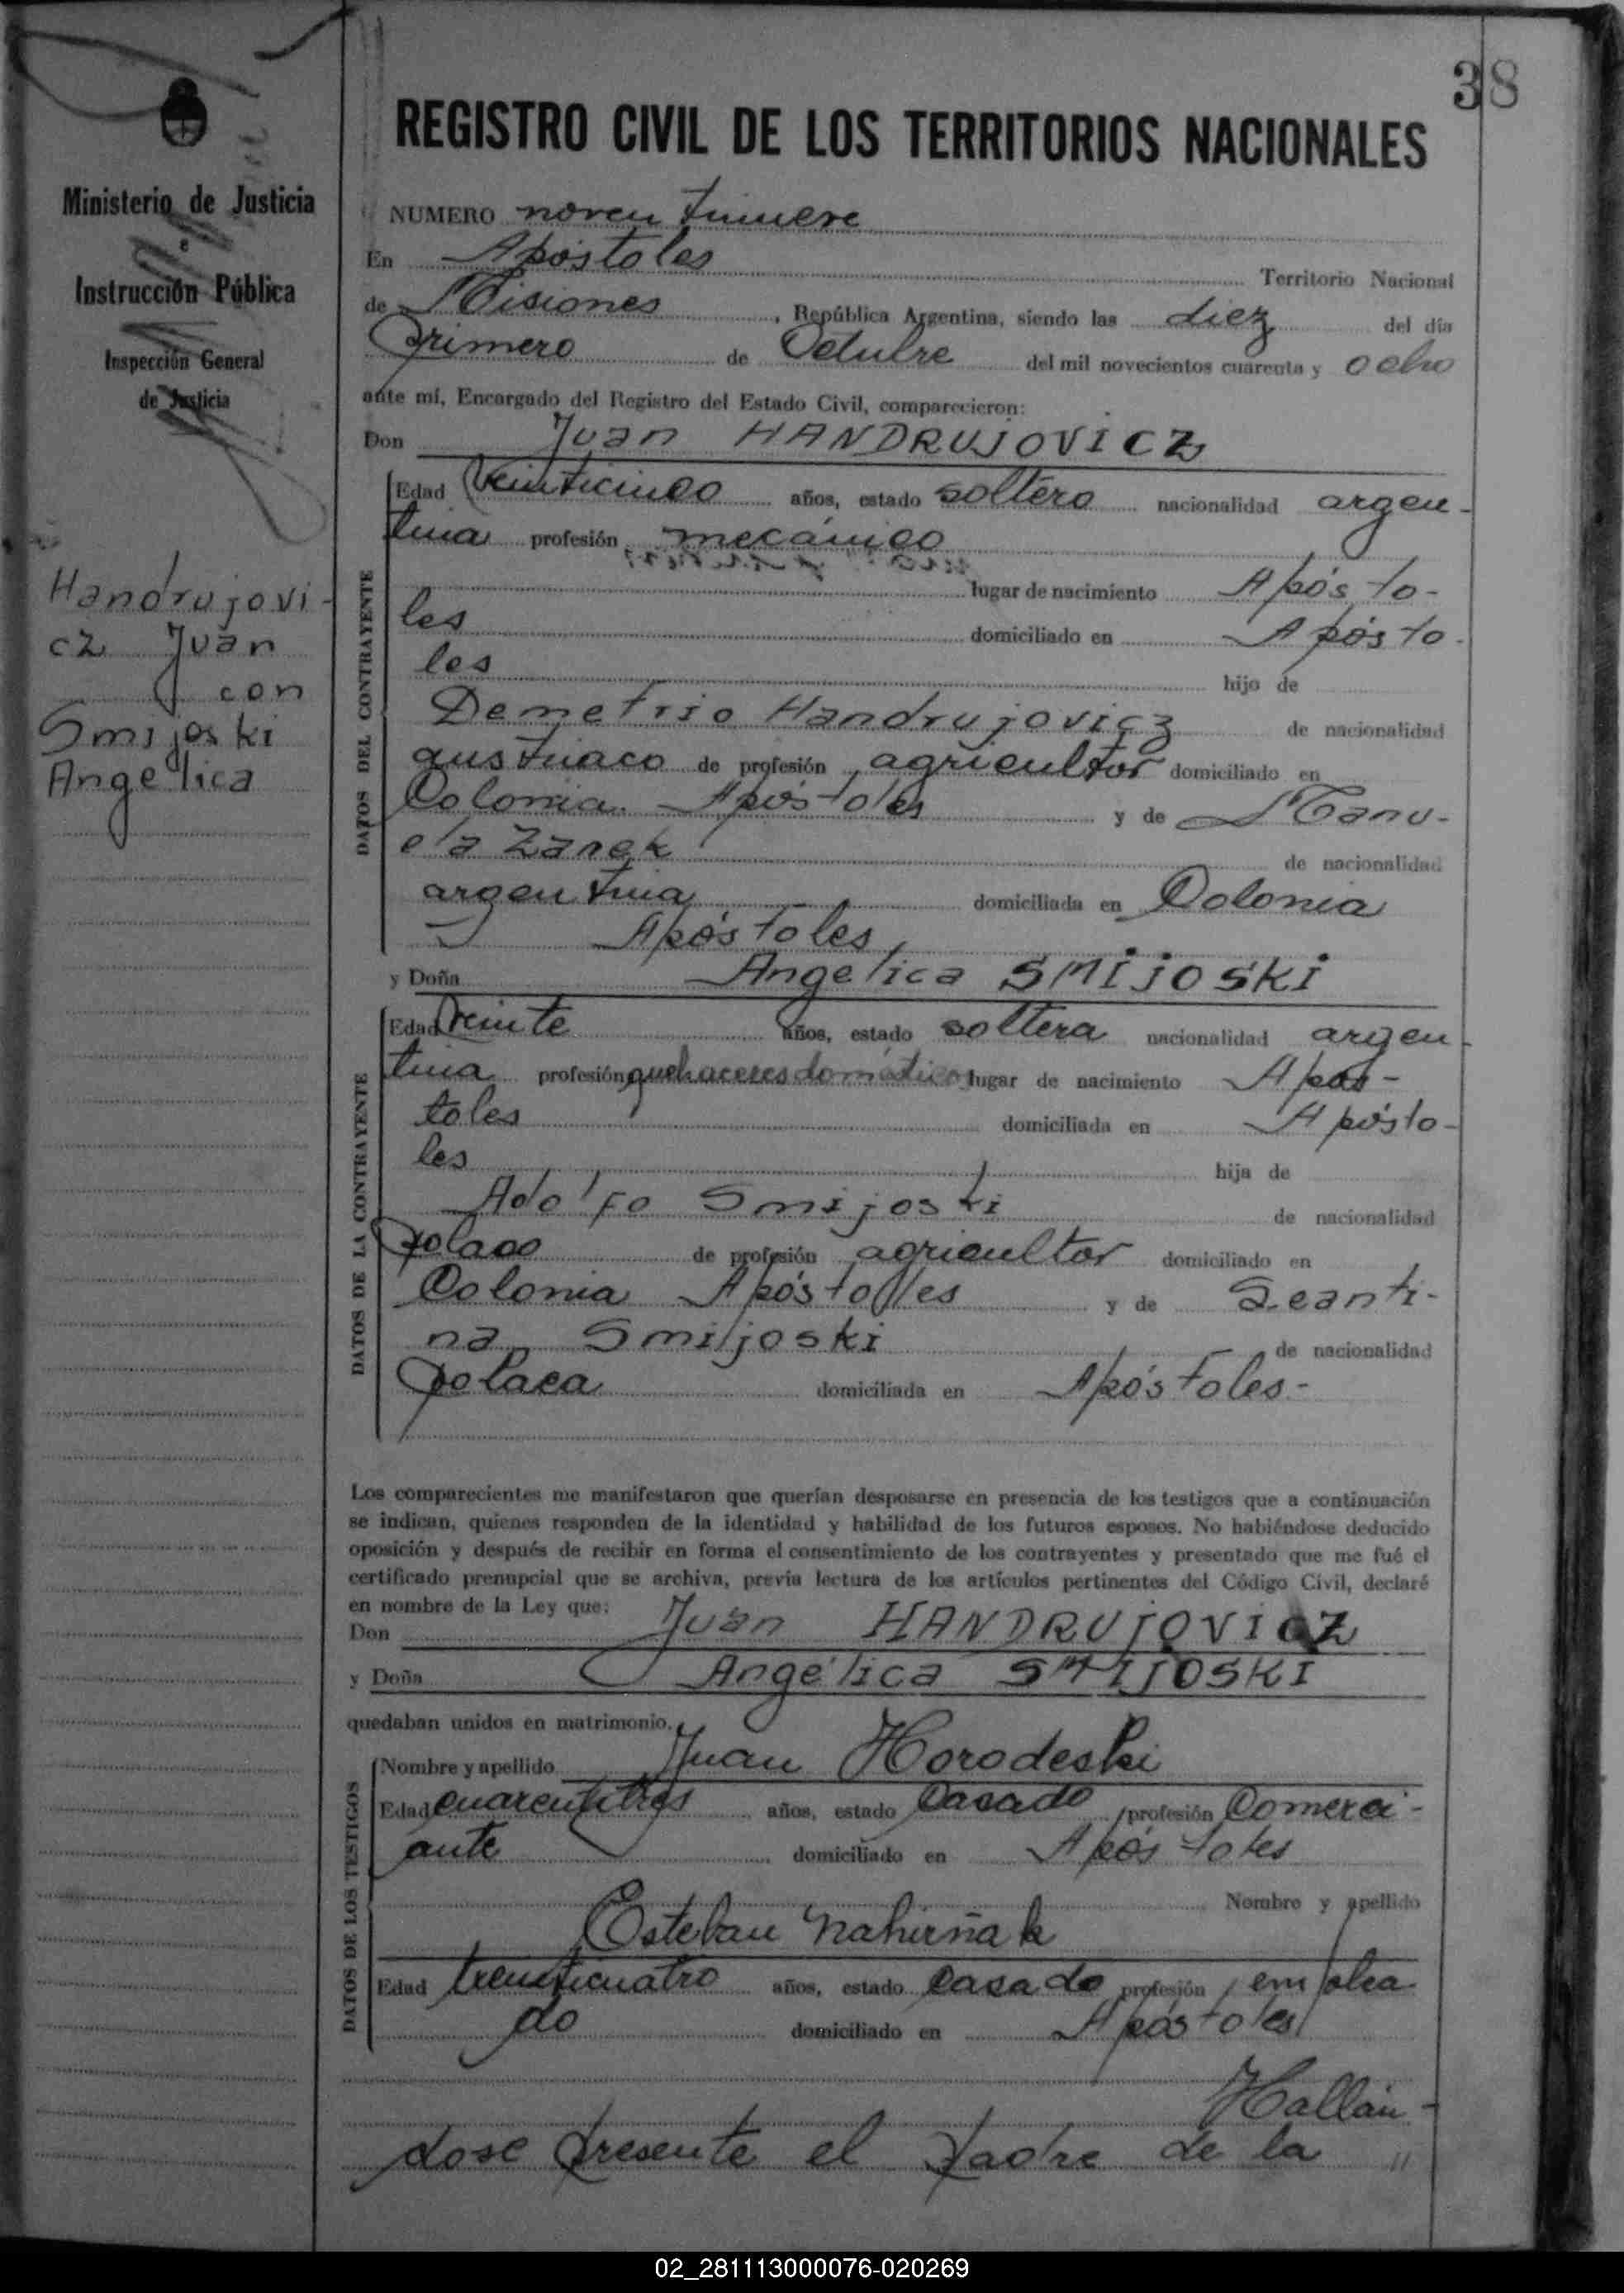 38
REGISTRO CIVIL DE LOS TERRITORIOS NACIONALES
Ministerio de Justicia
e
Instrucción Pública
Inspección General
de Justicia
Handrujovi-
cz Juan
con
Smijoski
Angelica
NUMERO noventinueve
En Apóstoles Territorio Nacional
de Misiones, República Argentina, siendo las diez del día
primero de Octubre del mil novecientos cuarenta y ocho
ante mí, Encargado del Registro del Estado Civil, comparecieron:
Don Juan HANDRUJOVICZ
DATOS DEL CONTRAYENTE
Edad veinticinco años, estado soltero nacionalidad argen-
tina profesión mecánico
lugar de nacimiento Apósto-
les domiciliado en Apósto-
les hijo de
Demetrio Handrujovicz de nacionalidad
austriaco de profesión agricultor domiciliado en
Colonia Apóstoles y de Manu-
ela Zanek de nacionalidad
argentina domiciliada en Colonia
Apóstoles,
y Doña Angelica SMIJOSKI
DATOS DE LA CONTRAYENTE
Edad veinte años, estado soltera nacionalidad argen-
tina profesión quehaceres domésticos lugar de nacimiento Após-
toles domiciliada en Apósto-
les hija de
Adolfo Smijoski de nacionalidad
polaco de profesión agricultor domiciliado en
Colonia Apóstoles y de
na Smijoski de nacionalidad
polaca domiciliada en Apóstoles-
Los comparecientes me manifestaron que querían desposarse en presencia de los testigos que a continuación
se indican, quienes responden de la identidad y habilidad de los futuros esposos. No habiéndose deducido
oposición y después de recibir en forma el consentimiento de los contrayentes y presentado que me fué el
certificado prenupcial que se archiva, previa lectura de los artículos pertinentes del Código Civil, declaré
en nombre de la Ley que:
Don Juan HANDRUJOVICZ
y Doña Angélica SMIJOSKI
quedaban unidos en matrimonio.
DATOS DE LOS TESTIGOS
Nombre y apellido Juan Horodeski
Edad cuarentitres años, estado Casado profesión Comerci-
ante domiciliado en Apóstoles
Nombre y apellido
Esteban Nahirñak
Edad treinticuatro años, estado casado profesión emplea-
do domiciliado en Apóstoles
Hallán-
dose presente el padre de la "
02_281113000076-020269